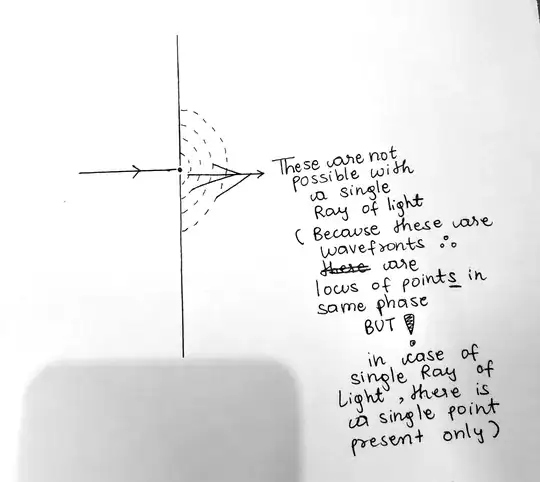 These are not
possible with
a single
Ray of light
( Because these are
wavefronts ∴
there are
locus of points in
same phase
BUT !
in case of
single Ray of
Light , there is
a single point
present only )